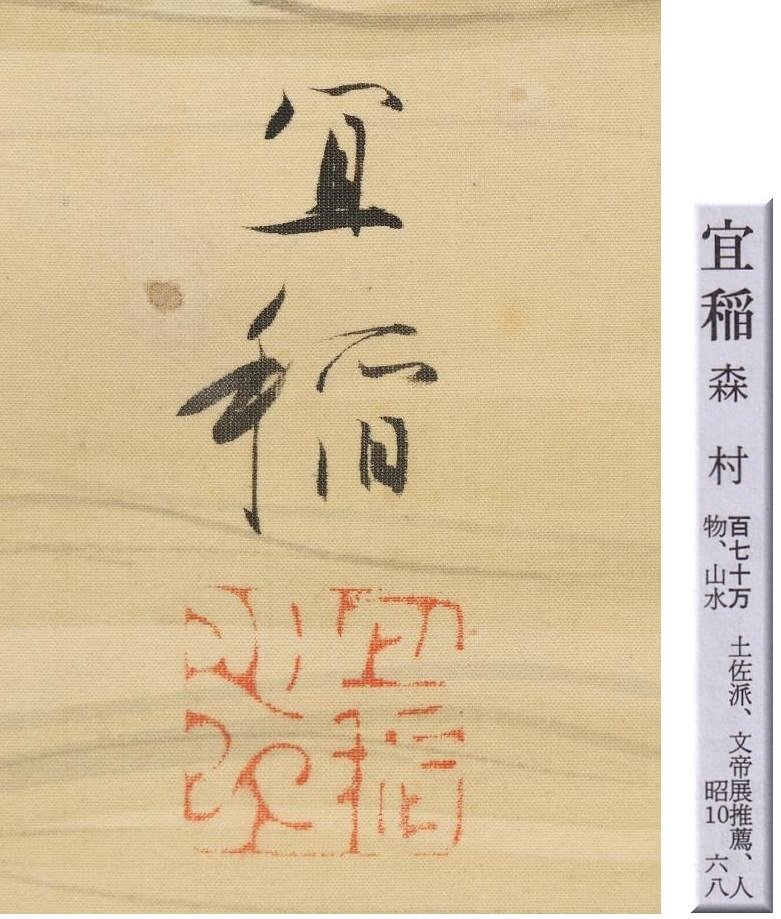 宜稲
宜稲 森村
百七十万 土佐派、文帝展推薦、人
物、山水 昭10 六八